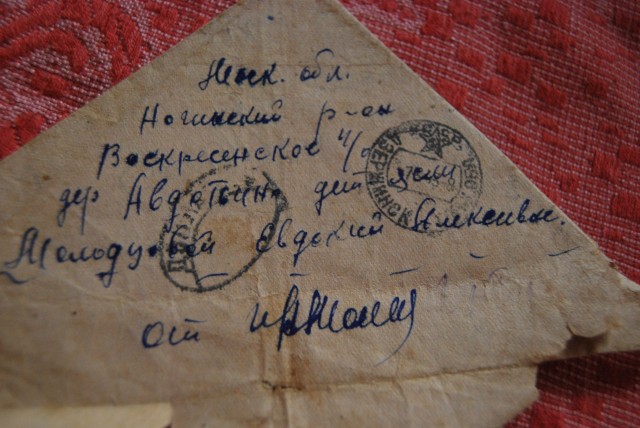 Моск. обл.
Ногинский р-он
Воскресенское п/о
дер Авдотьино дет ясли
Молодцовой Евдокий Алексивне.
от
ДЗЕРЖИНСК